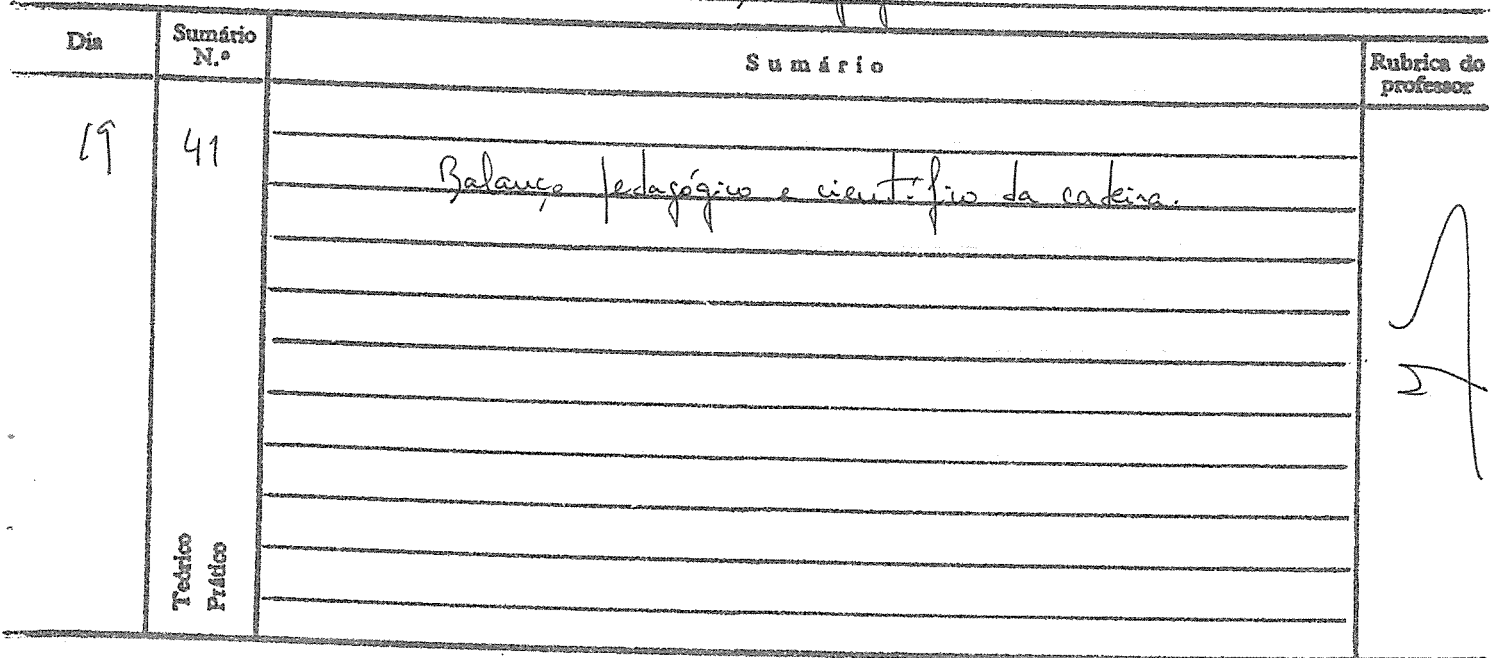 Dia
Sumário N.º
Sumário
Rubrica do professor
19
41
Balanço pedagógico e científico da cadeira.
Teórico
Prático